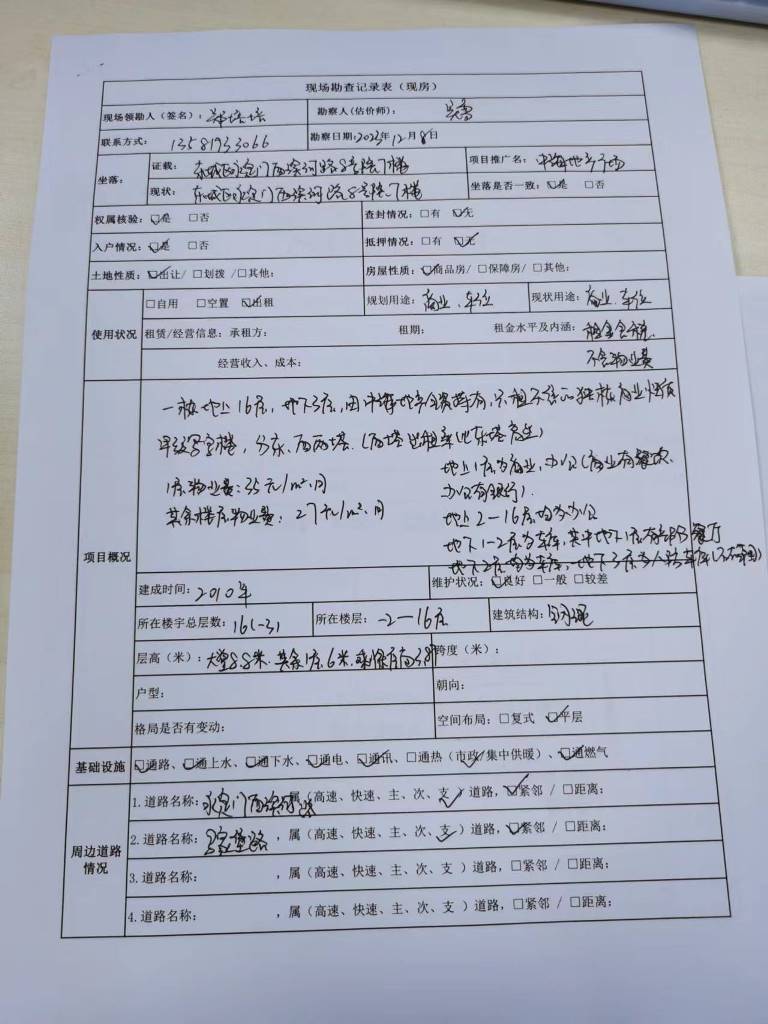 现场勘查记录表（现房）
现场领勘人（签名）： 勘察人(估价师)： 吴雪
联系方式： 13581933066 勘察日期:2023年12月8日
坐落： 证载： 东城区永定门西滨河路8号院7楼 项目推广名： 中海地产广场
现状： 东城区永定门西滨河路8号院7楼 坐落是否一致：☑是 □否
权属核验：☑是 □否 查封情况：□有 ☑无
入户情况：☑是 □否 抵押情况：□有 ☑无
土地性质：☑出让/ □划拨 /□其他: 房屋性质：☑商品房/ □保障房/ □其他:
使用状况 □自用 □空置 ☑出租 规划用途： 商业、车位 现状用途： 商业、车位
租赁/经营信息：承租方： 租期： 租金水平及内涵： 租金含税
经营收入、成本: 不含物业费
项目概况
一栋地上16层，地下3层，由中海地产全资持有，只租不售的独栋商业
写字楼，分东、西两塔.（西塔出租率比东塔高些）
1层物业费：35元/m².月
地上1层为商业、办公（商业有餐饮、
办公有银行）.
其余楼层物业费：27元/m².月
地上2-16层均为办公
地下1-2层为车库，其中地下1层有部分餐厅
建成时间： 2010年 维护状况：☑良好 □一般 □较差
所在楼宇总层数： 16(-3) 所在楼层： -2-16层 建筑结构：
层高（米）： 大堂8.8米、其余1层6米、 跨度（米）：
户型： 朝向：
格局是否有变动： 空间布局：□复式 ☑平层
基础设施 ☑通路、☑通上水、☑通下水、☑通电、☑通讯、□通热（市政/集中供暖）、☑通燃气
周边道路情况
1.道路名称： 永定门西滨河路 ，属（高速、快速、主、次、支✓）道路，☑紧邻 / □距离：
2.道路名称： ，属（高速、快速、主、次、支✓）道路，☑紧邻 / □距离：
3.道路名称： ，属（高速、快速、主、次、支 ）道路，□紧邻 / □距离：
4.道路名称： ，属（高速、快速、主、次、支 ）道路，□紧邻 / □距离：